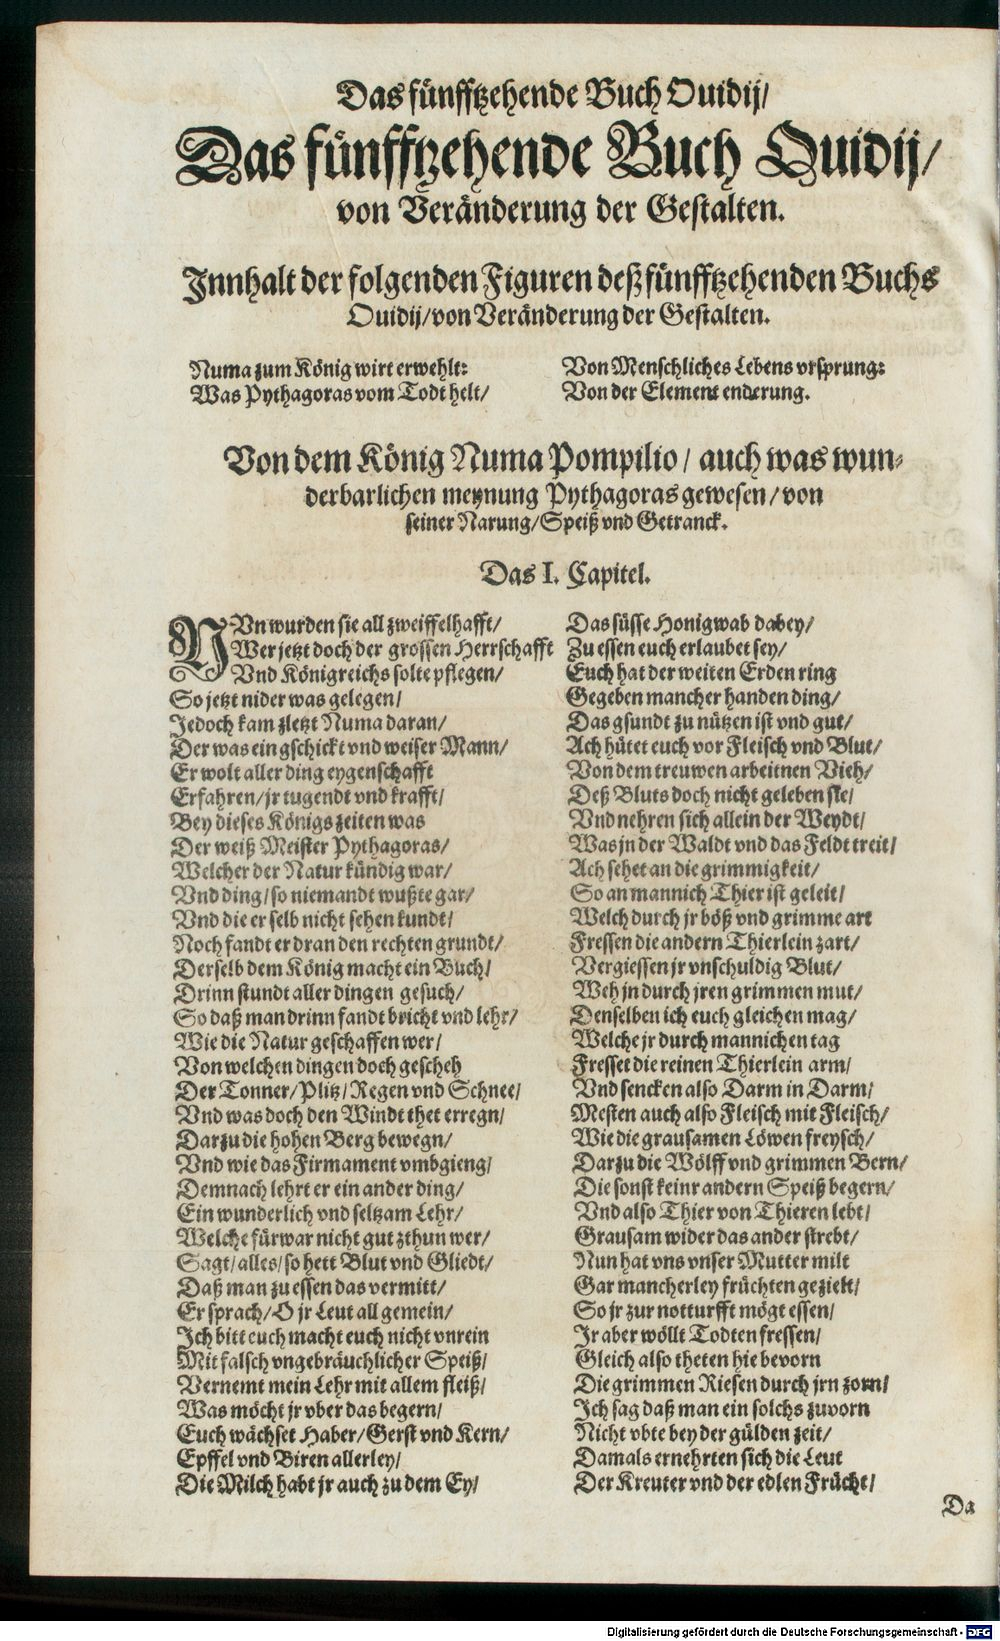 Das fünfftzehende Buch Ouidij/
Das fünfftzehende Buch Ouidij/
von Veränderung der Gestalten.
Innhalt der folgenden Figuren deß fünfftzehenden Buchs
Ouidij/von Veränderung der Gestalten.
Numa zum König wirt erwehlt:
Was Pythagoras vom Todt helt/
Von Menschliches Lebens vrsprung:
Von der Element enderung.
Von dem König Numa Pompilio/ auch was wun-
derbarlichen meynung Pythagoras gewesen/von
seiner Narung/Speiß vnd Getranck.
Das I. Capitel.
NVn wurden sie all zweiffelhafft/
Wer jetzt doch der grossen Herrschafft
Vnd Königreichs solte pflegen/
So jetzt nider was gelegen/
Jedoch kam zletzt Numa daran/
Der was ein gschickt vnd weiser Mann/
Er wolt aller ding eygenschafft
Erfahren/jr tugendt vnd krafft/
Bey dieses Königs zeiten was
Der weiß Meister Pythagoras/
Welcher der Natur kündig war/
Vnd ding/so niemandt wußte gar/
Vnd die er selb nicht sehen kundt/
Noch fandt er dran den rechten grundt/
Derselb dem König macht ein Buch/
Drinn stundt aller dingen gesuch/
So daß man drinn fandt bricht vnd lehr/
Wie die Natur geschaffen wer/
Von welchen dingen doch gescheh
Der Tonner/Plitz/Regen vnd Schnee/
Vnd was doch den Windt thet erregn/
Darzu die hohen Berg bewegn/
Vnd wie das Firmament vmbgieng/
Demnach lehrt er ein ander ding/
Ein wunderlich vnd seltzam Lehr/
Welche fürwar nicht gut zthun wer/
Sagt/alles/so hett Blut vnd Gliedt/
Daß man zu essen das vermitt/
Er sprach/O jr Leut all gemein/
Ich bitt euch macht euch nicht vnrein
Mit falsch vngebräuchlicher Speiß/
Vernemt mein Lehr mit allem fleiß/
Was möcht jr vber das begern/
Euch wächset Haber/Gerst vnd Kern/
Epffel vnd Biren allerley/
Die Milch habt jr auch zu dem Ey/
Das süsse Honigwab dabey/
Zu essen euch erlaubet sey/
Euch hat der weiten Erden ring
Gegeben mancher handen ding/
Das gsundt zu nützen ist vnd gut/
Ach hütet euch vor Fleisch vnd Blut/
Von dem treuwen arbeitnen Vieh/
Deß Bluts doch nicht geleben sie/
Vnd nehren sich allein der Weydt/
Was jn der Waldt vnd das Feldt treit/
Ach sehet an die grimmigkeit/
So an mannich Thier ist geleit/
Welch durch jr böß vnd grimme art
Fressen die andern Thierlein zart/
Vergiessen jr vnschuldig Blut/
Weh jn durch jren grimmen mut/
Denselben ich euch gleichen mag/
Welche jr durch mannichen tag
Fresset die reinen Thierlein arm/
Vnd sencken also Darm in Darm/
Mesten auch also Fleisch mit Fleisch/
Wie die grausamen Löwen freysch/
Darzu die Wölff vnd grimmen Bern/
Die sonst keinr andern Speiß begern/
Vnd also Thier von Thieren lebt/
Grausam wider das ander strebt/
Nun hat vns vnser Mutter milt
Gar mancherley früchten gezielt/
So jr zur notturfft mögt essen/
Ir aber wöllt Todten fressen/
Gleich also theten hie bevorn
Die grimmen Riesen durch jrn zorn/
Ich sag daß man ein solchs zuvorn
Nicht vbte bey der gülden zeit/
Damals ernehrten sich die Leut
Der Kreuter vnd der edlen Frücht/
Da
Digitalisierung gefördert durch die Deutsche Forschungsgemeinschaft - DFG